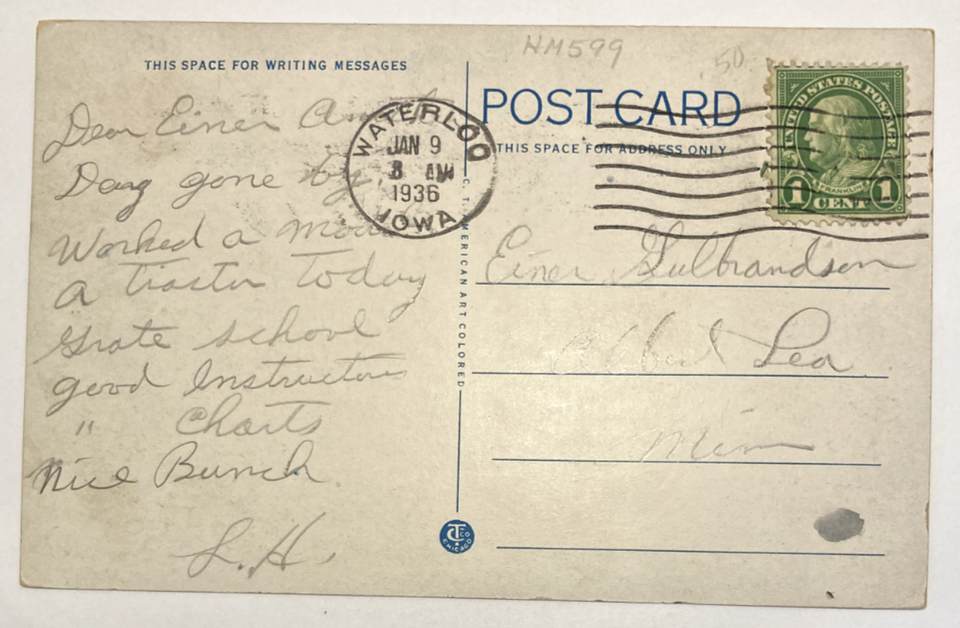 HM599
50
THIS SPACE FOR WRITING MESSAGES
POST CARD
THIS SPACE FOR ADDRESS ONLY
WATERLOO
JAN 9
8 AM
1936
IOWA
UNITED STATES POSTAGE
FRANKLIN
1 CENT 1
Dear Einer
Dang gone
Worked a
a tractor Today
Grate school
good Instructors
" Charts
Nice Bunch
L.H.
C. T. AMERICAN ART COLORED
Einer Gulbrandson
Albert Lea
Minn
CHICAGO